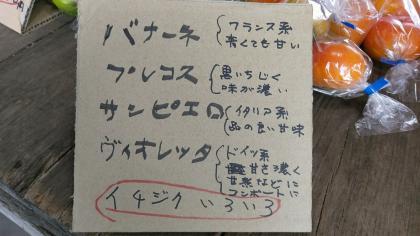 バナーネ
フランス系
青くても甘い
プレコス
黒いちじく
味が濃い
サンピエロ
イタリア系
品の良い甘味
ヴィオレッタ
ドイツ系
甘さ濃く
甘煮などに
コンポートに
イチジクいろいろ